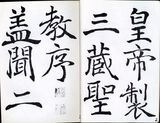 皇帝製
三蔵聖
教序
盖聞二